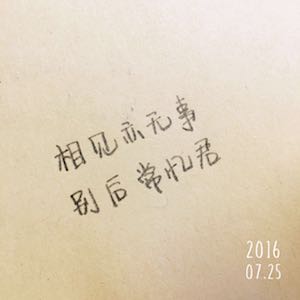 相见亦无事
别后常忆君
2016
07.25